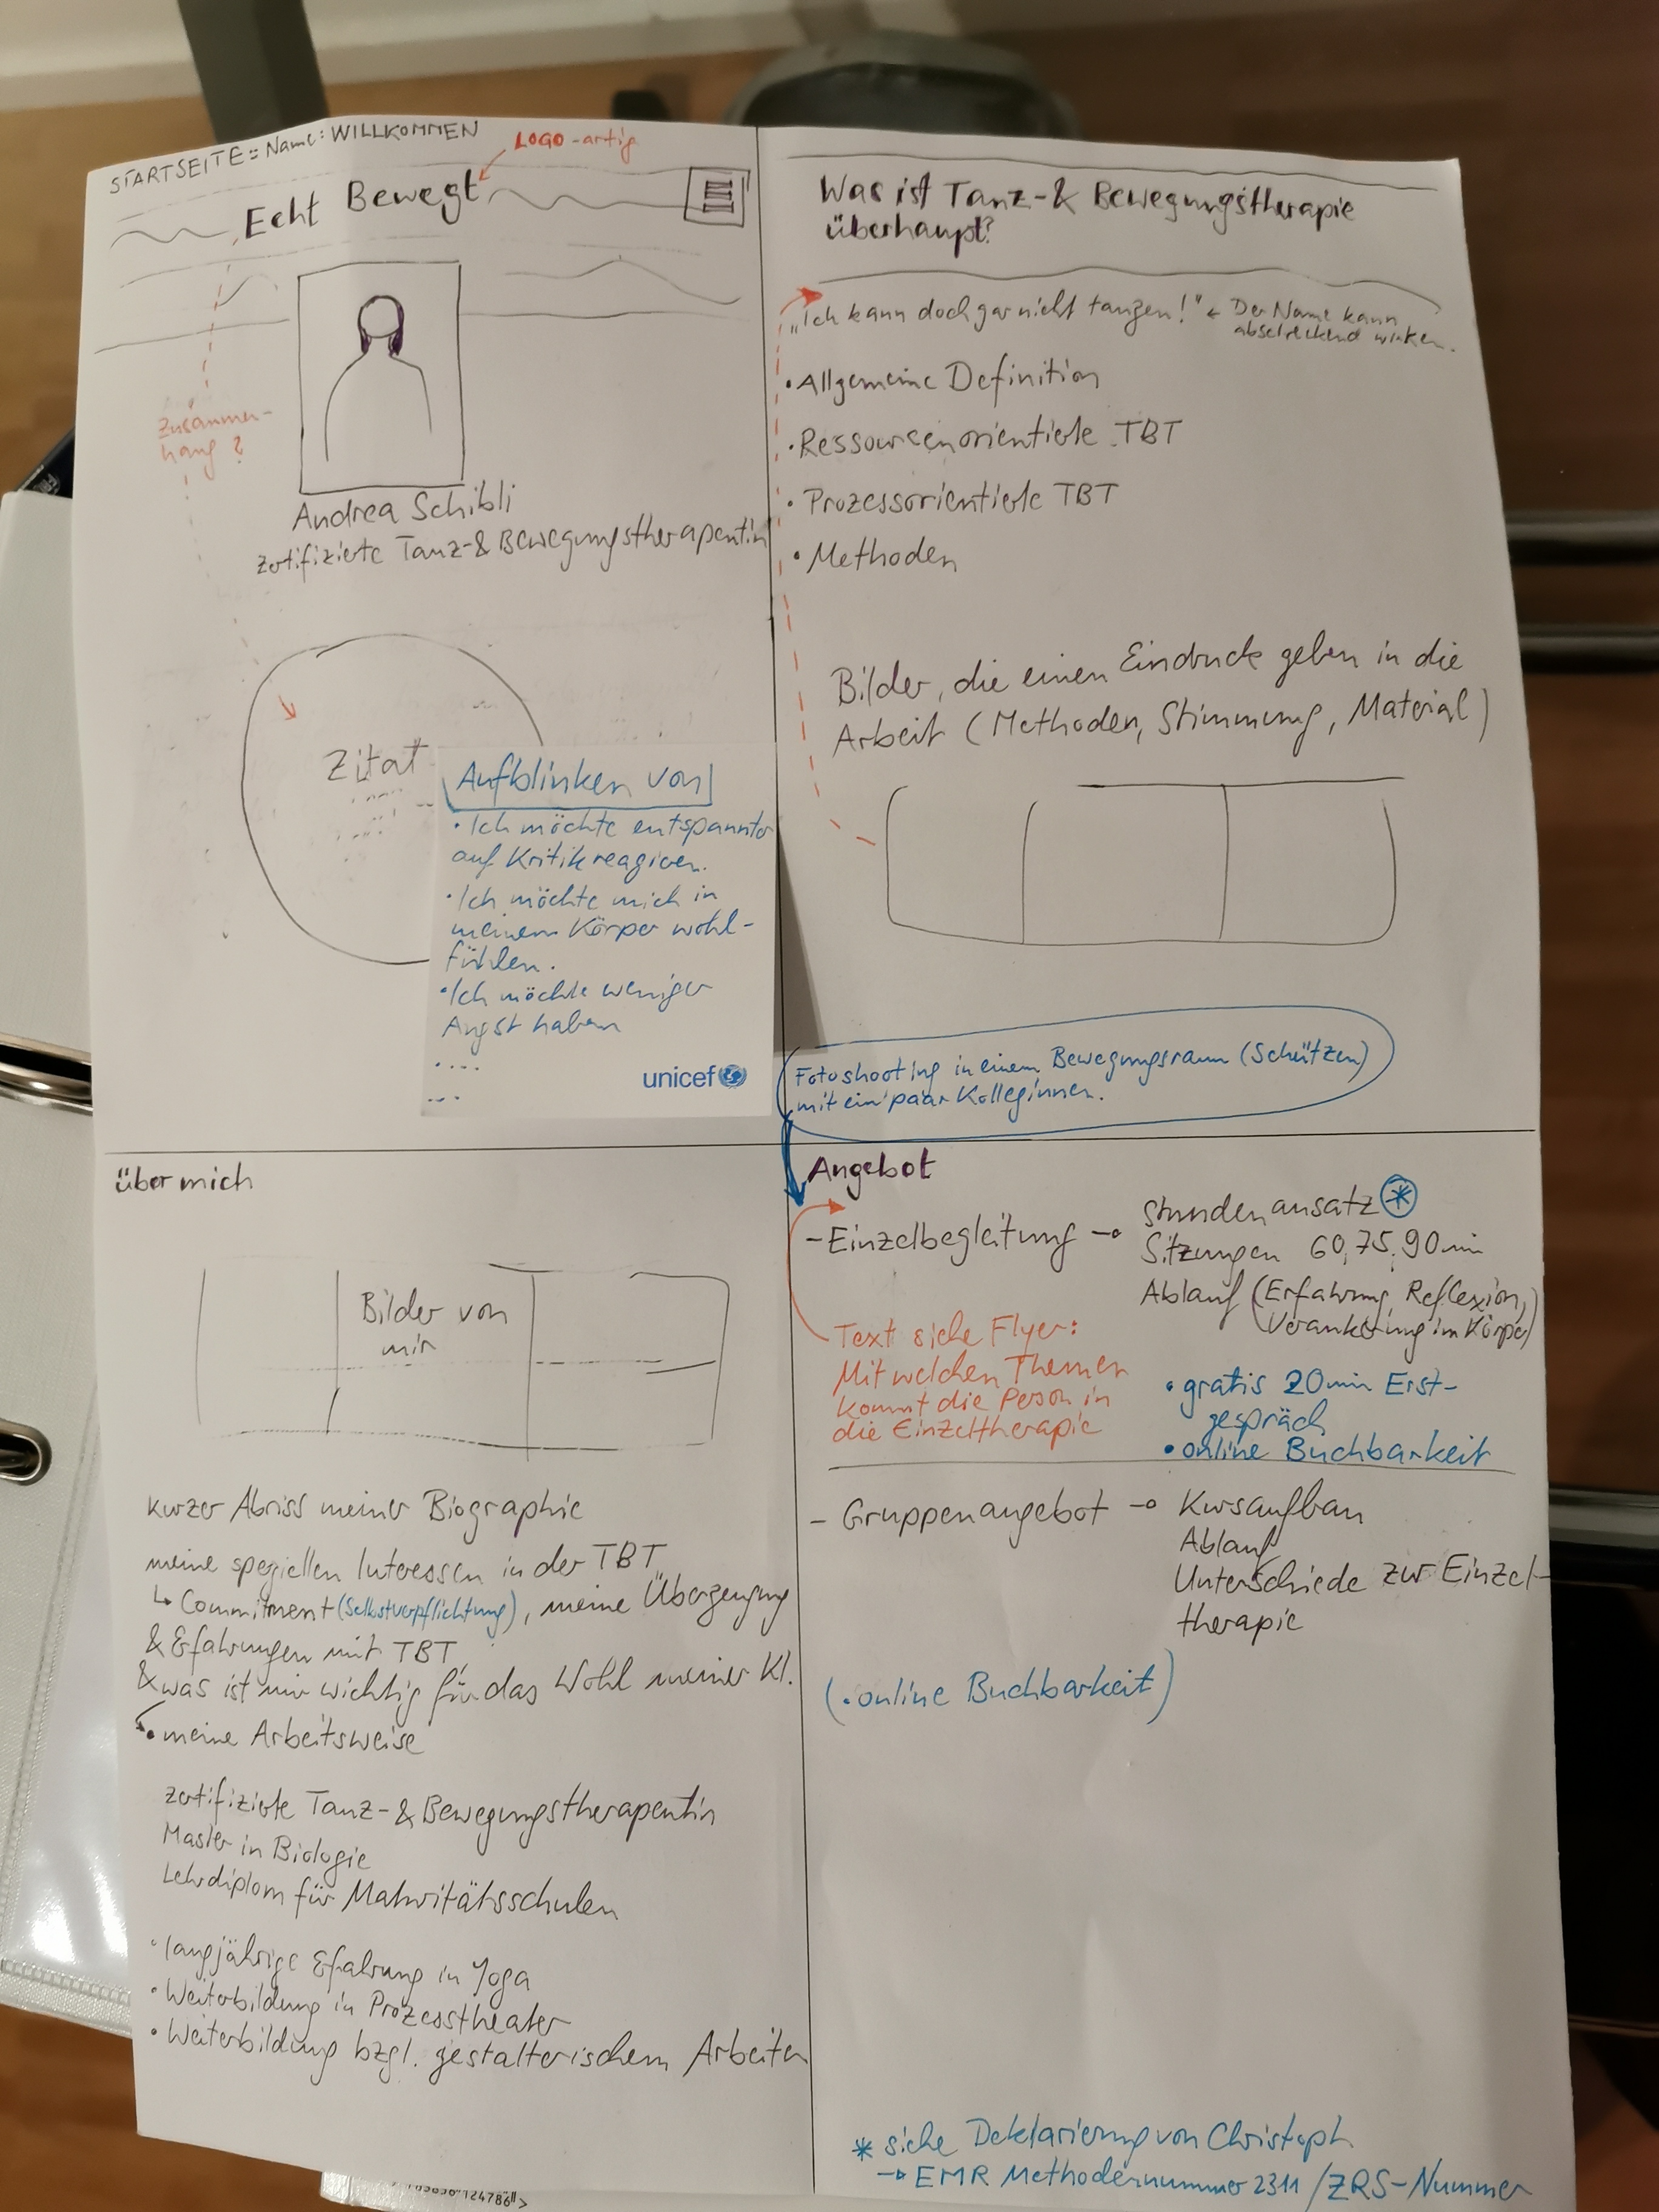 STARTSEITE = Name: WILLKOMMEN
LOGO-artig
Echt Bewegt
Zusammen-
hang?
Andrea Schibli
zertifizierte Tanz-& Bewegungstherapeutin
Zitat
Aufblinken von
• Ich möchte entspannter
auf Kritik reagieren.
• Ich möchte mich in
meinem Körper wohl-
fühlen.
• Ich möchte weniger
Angst haben
....
...
unicef
Was ist Tanz-& Bewegungstherapie
überhaupt?
„Ich kann doch gar nicht tanzen!" ← Der Name kann
abschreckend wirken.
• Allgemeine Definition
• Ressourcenorientierte TBT
• Prozessorientierte TBT
• Methoden
Bilder, die einen Eindruck geben in die
Arbeit (Methoden, Stimmung, Material)
Fotoshooting in einem Bewegungsraum (Schützen)
mit ein paar Kolleginnen.
über mich
Bilder von
mir
kurzer Abriss meiner Biographie
meine speziellen Interessen in der TBT
↳ Commitment (Selbstverpflichtung), meine Überzeugung
& Erfahrungen mit TBT,
& was ist mir wichtig für das Wohl meiner Kl.
• meine Arbeitsweise
zertifizierte Tanz-& Bewegungstherapeutin
Master in Biologie
Lehrdiplom für Maturitätsschulen
• langjährige Erfahrung in Yoga
• Weiterbildung in Prozesstheater
• Weiterbildung bzgl. gestalterischem Arbeiten
Angebot
- Einzelbegleitung → Stundenansatz *
Sitzungen 60, 75, 90 min
Ablauf (Erfahrung, Reflexion,
Verankerung im Körper)
Text siehe Flyer:
Mit welchen Themen
kommt die Person in
die Einzeltherapie
• gratis 20 min Erst-
gespräch
• online Buchbarkeit
- Gruppenangebot → Kursaufbau
Ablauf
Unterschiede zur Einzel-
therapie
(• online Buchbarkeit)
* siehe Deklarierung von Christoph
→ EMR Methodennummer 2311 / ZRS-Nummer